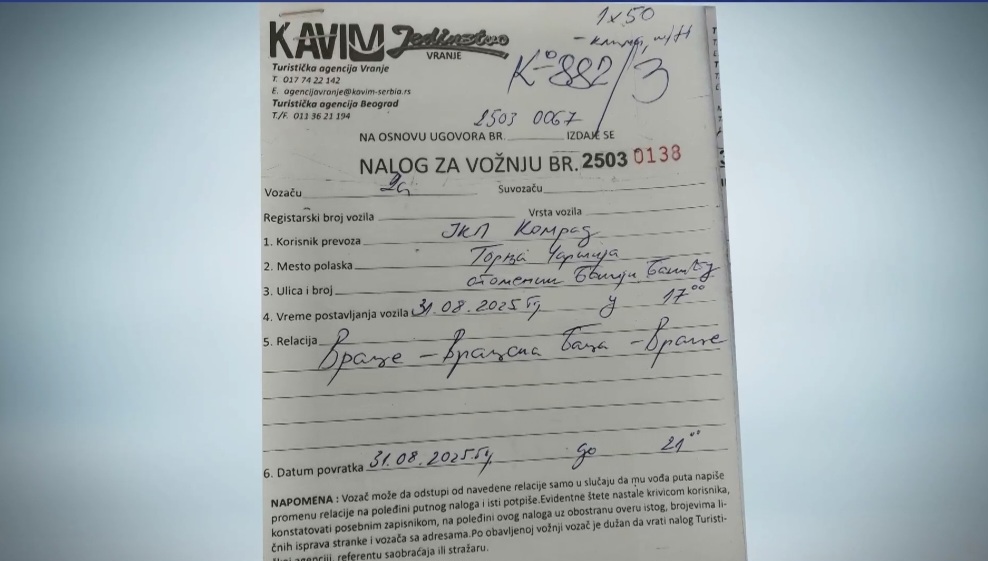 1 x 50
KAVIM Jedinstvo
VRANJE
Turistička agencija Vranje
T. 017 74 22 142
E. agencijavranje@kavim-serbia.rs
Turistička agencija Beograd
T./F. 011 36 21 194
K-882/3
2503 0067
NA OSNOVU UGOVORA BR. IZDAJE SE
NALOG ZA VOŽNJU BR. 2503 0138
Vozaču Suvozaču
Registarski broj vozila Vrsta vozila
1. Korisnik prevoza ЈКП Комрад
2. Mesto polaska Горња Чаршија
3. Ulica i broj споменик
4. Vreme postavljanja vozila 31.08.2025 у 17⁰⁰
5. Relacija Врање - Врањска Бања - Врање
6. Datum povratka 31.08.2025 до 21⁰⁰
NAPOMENA : Vozač može da odstupi od navedene relacije samo u slučaju da mu vođa puta napiše
promenu relacije na poleđini putnog naloga i isti potpiše.Evidentne štete nastale krivicom korisnika,
konstatovati posebnim zapisnikom, na poleđini ovog naloga uz obostranu overu istog, brojevima li-
čnih isprava stranke i vozača sa adresama.Po obavljenoj vožnji vozač je dužan da vrati nalog Turisti-
čkoj agenciji, referentu saobraćaja ili stražaru.